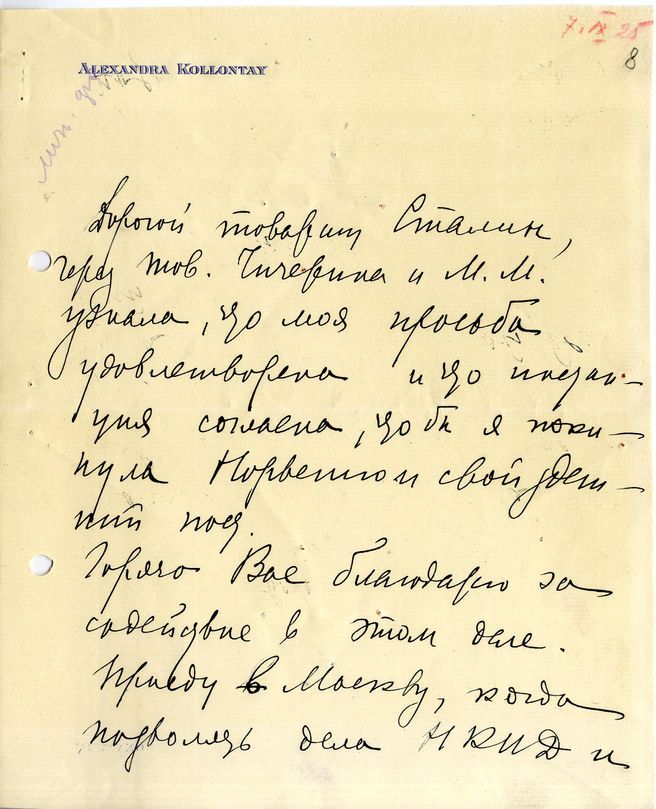 7.IX 25
8
ALEXANDRA KOLLONTAY
Дорогой товарищ Сталин,
через тов. Чичерина и М.М.
узнала, что моя просьба
удовлетворена и что инстан-
ция согласна, чтобы я поки-
нула Норвегию и свой здеш-
ний пост.
Горячо Вас благодарю за
содействие в этом деле.
Приеду в Москву, когда
позволят дела НКИД и